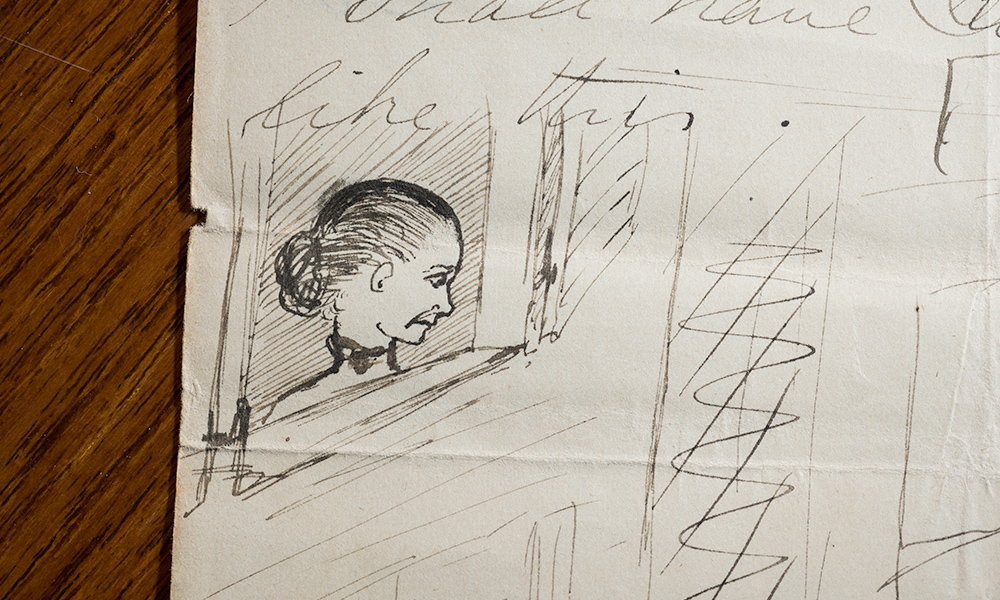 shall have
like this.